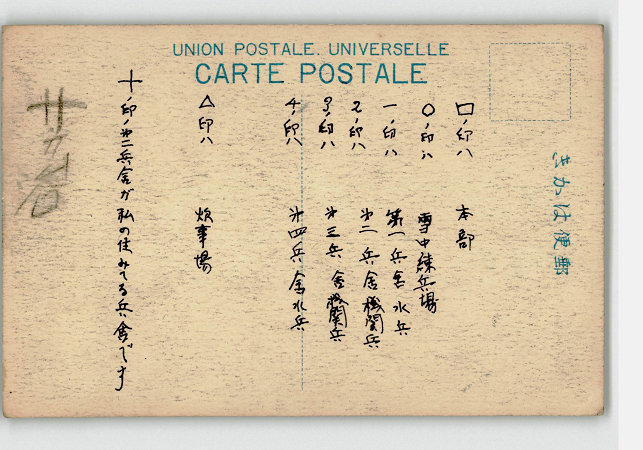 UNION POSTALE. UNIVERSELLE
CARTE POSTALE
きかは便郵
□ノ印ハ 本部
○ノ印ハ 雪中練兵場
一ノ印ハ 第一兵舎水兵
2ノ印ハ 第二兵舎機関兵
3ノ印ハ 第三兵舎機関兵
4ノ印ハ 第四兵舎水兵
△印ハ 炊事場
十ノ印ノ第二兵舎ガ私の住みてる兵舎です